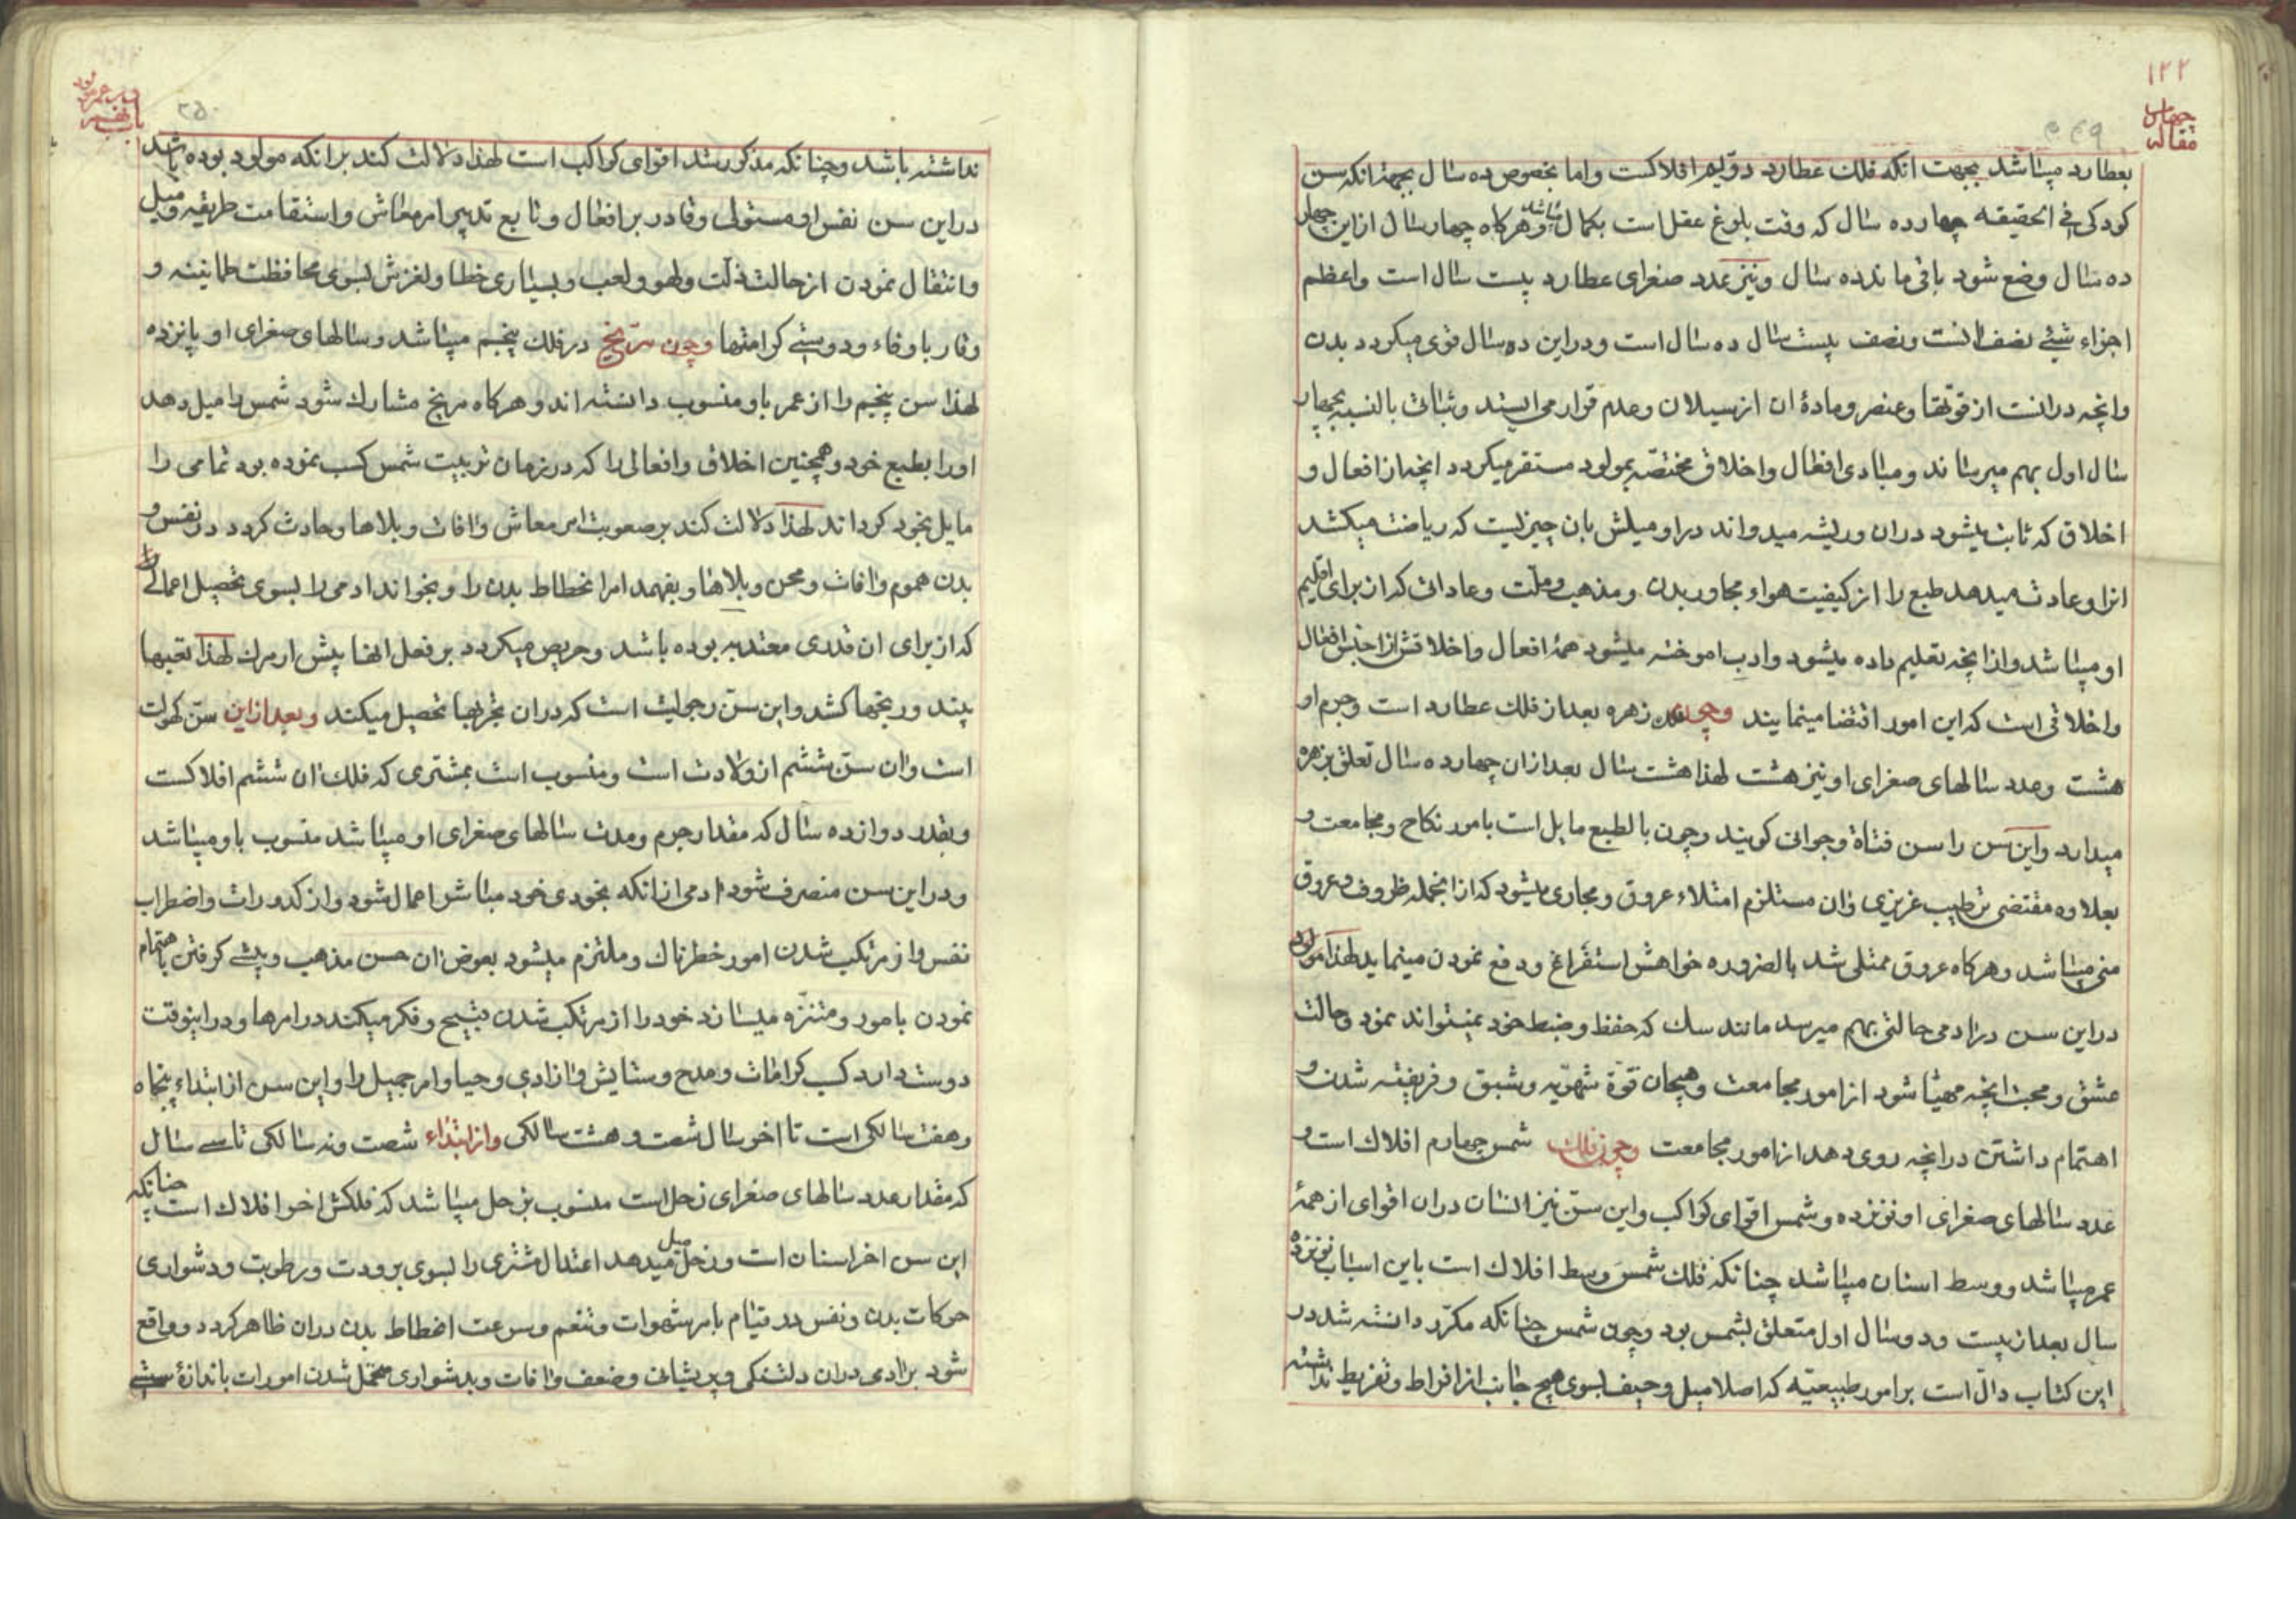 ۱۲۲
چهارم
مقاله
۲۴۹
بعطارد میباشد بجهت انکه فلک عطارد دوّیم افلاکست واما بخصوص ده سال بجهة انکه سن
کودکی فی الحقیقه چهارده سال که وقت بلوغ عقل است بکمال میباشد وهرکاه چهار سال از این چهار
ده سال وضع شود باقی ماند ده سال ونیز عدد صغرای عطارد بیست سال است واعظم
اجزاء شیئ نصف انست ونصف بیست سال ده سال است ودر این ده سال قوی میکردد بدن
وانچه در انست از قوتها وعنصر ومادۀ ان از سیلان وعدم قوار می ایستد وثباتی بالنسبه بچهار
سال اول بهم میرساند ومبادی افعال واخلاق مختصّه بمولود مستقر میکردد انچه از افعال و
اخلاق که ثابت میشود دران وریشه میدواند در او میلش بان چیزیست که ریاضت میکشد
انرا وعادت میدهد طبع را از کیفیت هواء مجاور بدن ومذهب وملّت وعاداتی که از برای اقلیم
او میباشد واز انچه تعلیم داده میشود وادب اموخته میشود همۀ افعال واخلاقش از جنس افعال
واخلاقی است که این امور اقتضا مینمایند وچون فلک زهره بعد از فلک عطارد است وجرم او
هشت وعدد سالهای صغرای او نیز هشت لهذا هشت سال بعد ازان چهارده سال تعلق بزهره
میدارد واین سن را سن فتاة وجوانی کویند وچون بالطبع مایل است بامور نکاح ومجامعت و
بعلاوه مقتضی ترطیب غریزی وان مستلزم امتلاء عروق ومجاری میشود که از انجمله ظروف وعروق
منی میباشد وهرکاه عروق ممتلی شد بالضروره خواهش استفراغ ودفع نمودن مینماید لهذا مولود
در این سن در ادمی حالتی بهم میرسد مانند سک که حفظ وضبط خود نمیتواند نمود وحالت
عشق ومحبت انچه مهیّا شود از امور مجامعت وهیجان قوّة شهویّه وشبق وفریفته شدن و
اهتمام داشتن در انچه روی دهد از امور مجامعت وچون فلک شمس چهارم افلاک است و
عدد سالهای صغرای او نوزده وشمس اقوای کواکب واین سنّ نیز انسان دران اقوای از همۀ
عمر میباشد ووسط اسنان میباشد چنانکه فلک شمس وسط افلاک است باین اسباب نوزده
سال بعد از بیست ودو سال اول متعلق بشمس بود وچون شمس چنانکه مکرّر دانسته شد در
این کتاب دالّ است بر امور طبیعیّه که اصلا میل وحیف بسوی هیچ جانب از افراط وتفریط نداشته
باب نهم
۲۵۰
نداشته باشد وچنانکه مذکور شد اقوای کواکب است لهذا دلالت کند بر انکه مولود بوده باشد
در این سن نفس او مستولی وقادر بر افعال وتابع تدبیر امر معاش واستقامت طریقه ومیل
وانتقال نمودن از حالت ذلّت ولهو ولعب وبسیاری خطا ولغزش بسوی محافظت طمانینه و
وقار باوفاء ودوستی کرامتها وچون مرّیخ در فلک پنجم میباشد وسالهای صغرای او پانزده
لهذا سن پنجم را از عمر باو منسوب دانسته اند وهرکاه مریخ مشارک شود شمس را میل دهد
اورا بطبع خود وهمچنین اخلاق وافعالی را که در زمان تربیت شمس کسب نموده بود تمامی را
مایل بخود کرداند لهذا دلالت کند بر صعوبت امر معاش وافات وبلاها وحادث کردد در نفس و
بدن هموم وافات ومحن وبلاها وبفهمد امر انحطاط بدن را وبخواند ادمی را بسوی تحصیل اعمالی را
که از برای ان قدری معتد به بوده باشد وحریص میکردد بر فعل انها پیش از مرک لهذا تعبها
بیند ورنجها کشد واین سنّ رجولیت است که دران تجربها تحصیل میکند وبعد از این سنّ کهولت
است وان سنّ ششم از ولادت است ومنسوب است بمشتری که فلک ان ششم افلاکست
وبقدر دوازده سال که مقدار جرم ومدت سالهای صغرای او میباشد منسوب باو میباشد
ودر این سن منصرف شود ادمی از انکه بخودی خود مباشر اعمال شود واز کدورات واضطراب
نفس واز مرتکب شدن امور خطرناک وملتزم میشود بعوض ان حسن مذهب وپیشی کرفتن باهتمام
نمودن بامور ومنزّه میسازد خود را از مرتکب شدن قبیح وفکر میکند در امرها ودر اینوقت
دوست دارد کسب کرامات ومدح وستایش وازادی وحیا وامر جمیل را واین سن از ابتداء پنجاه
وهفت سالکی است تا اخر سال شصت وهشت سالکی واز ابتداء شصت ونه سالکی تا سی سال
که مقدار عدد سالهای صغرای زحل است منسوب بزحل میباشد که فلکش اخر افلاک است چنانکه
این سن اخر اسنان است وزحل میل میدهد اعتدال مشتری را بسوی برودت ورطوبت ودشواری
حرکات بدن ونفس در قیام بامر شهوات وتنعم وسرعت انحطاط بدن دران ظاهر کردد وواقع
شود برادمی دران دلتنکی وپریشانی وضعف وافات وبدشواری متحمّل شدن امورات باندازۀ سستی